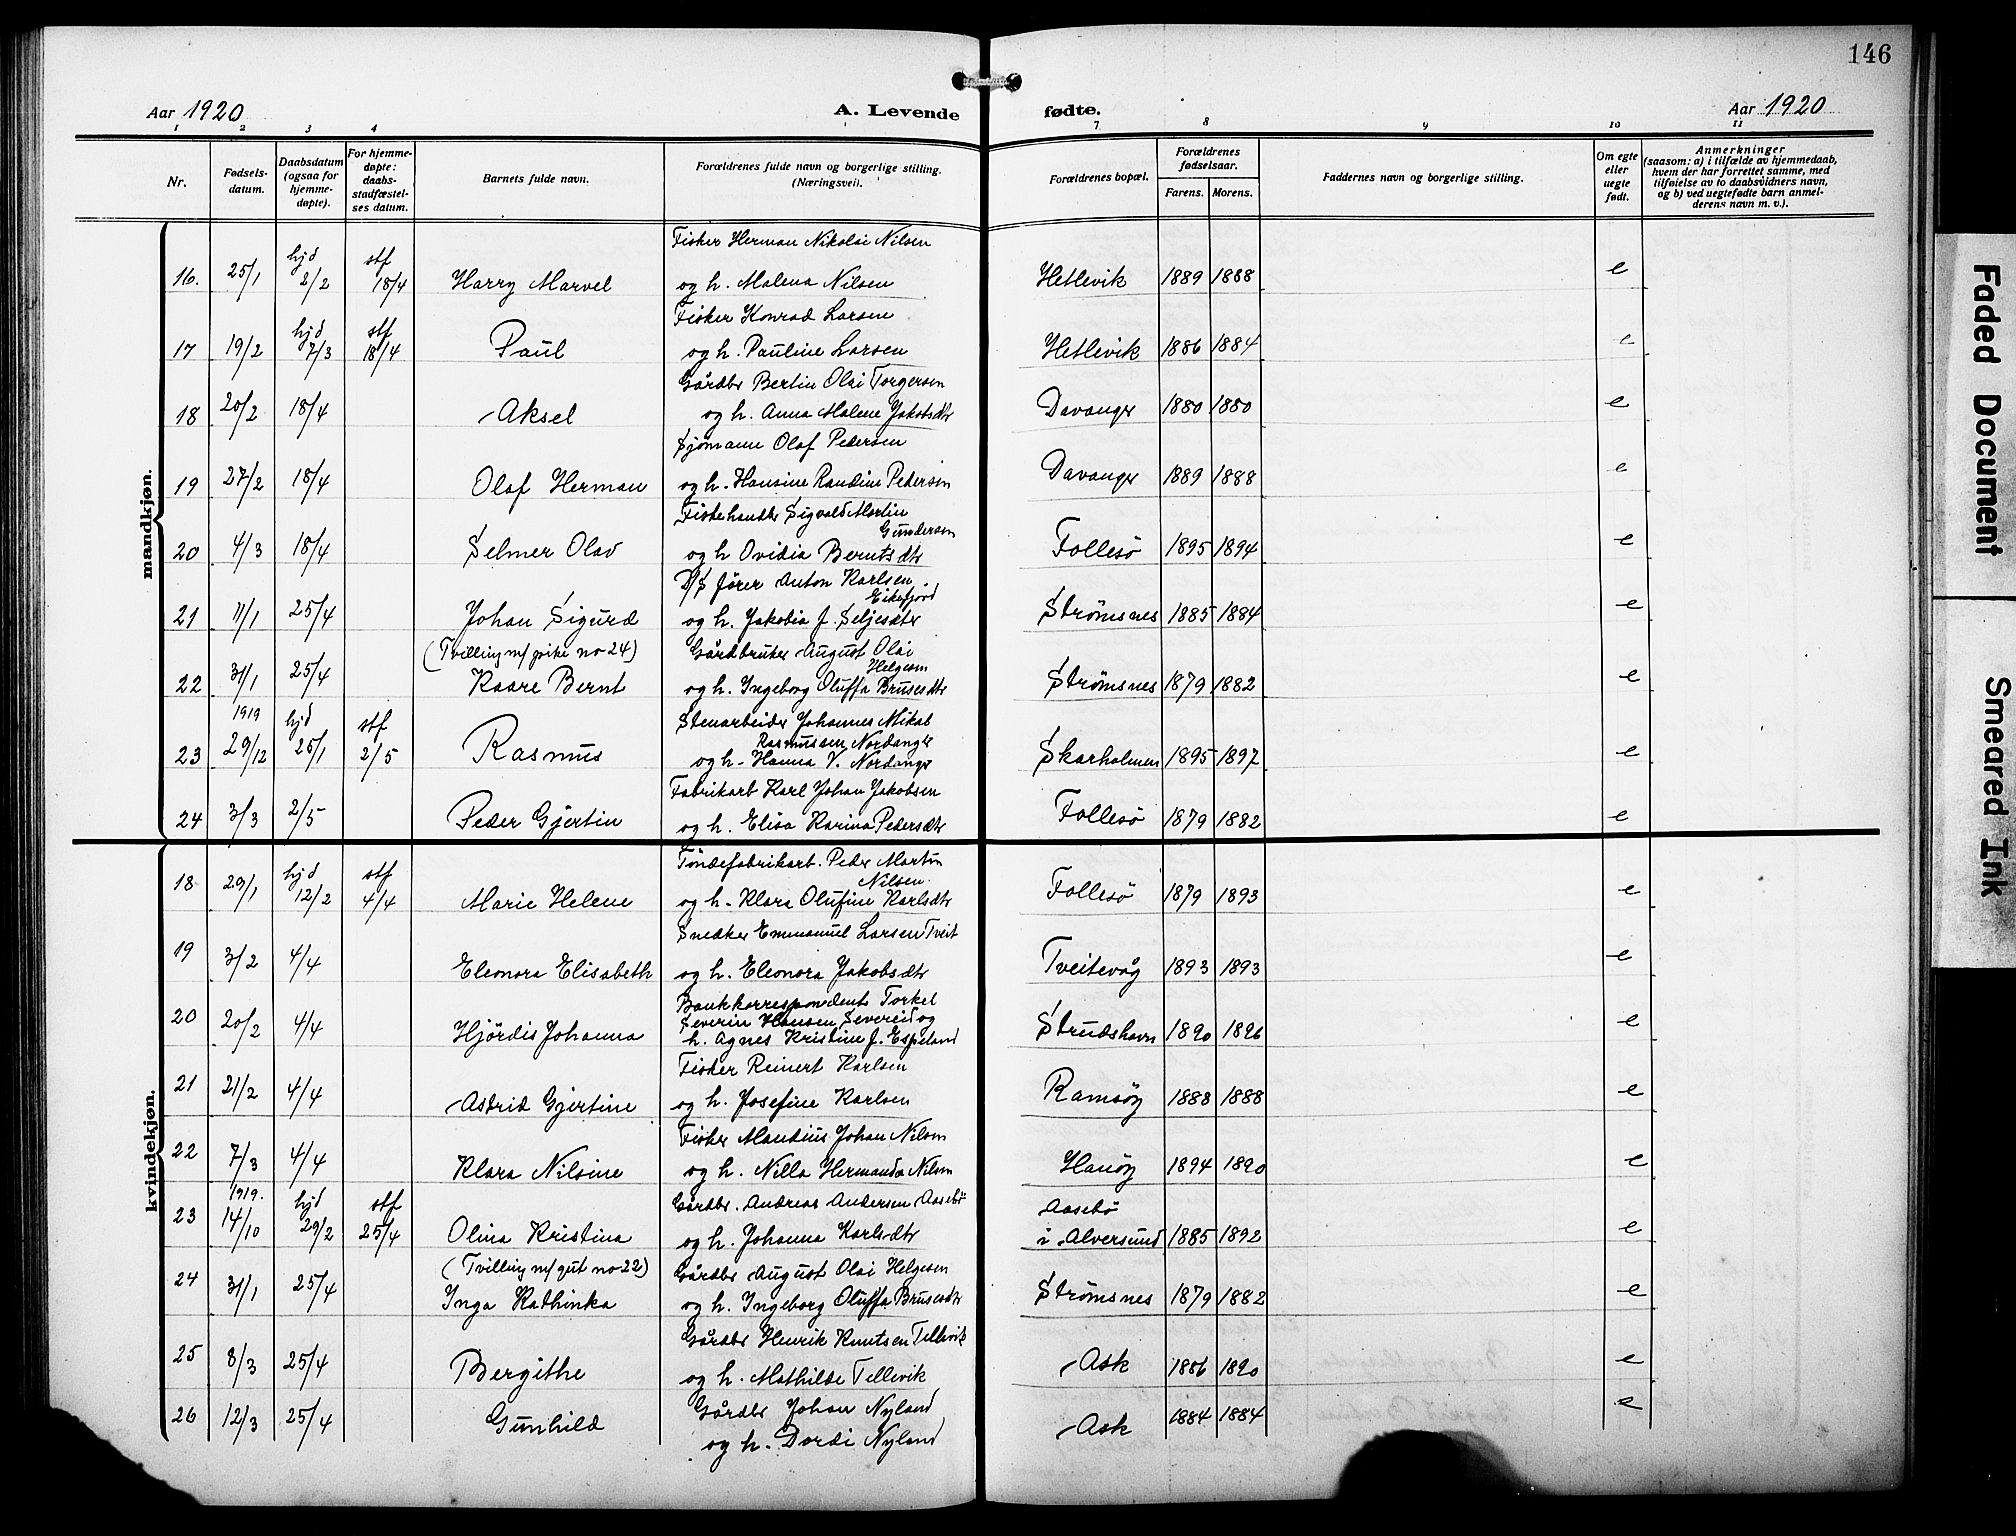 146
Aar 1920
A. Levende fødte.
Aar 1920
1 2 3 4 7 8 9 10 11
Nr. | Fødsels-datum. | Daabsdatum (ogsaa for hjemme-døpte). | For hjemme-døpte: daabs-stadfæstel-ses datum. | Barnets fulde navn. | Forældrenes fulde navn og borgerlige stilling. (Næringsvei). | Forældrenes bopæl. | Forældrenes fødselsaar. Farens. Morens. | Faddernes navn og borgerlige stilling. | Om egte eller uegte født. | Anmerkninger (saasom: a) i tilfælde av hjemmedaab, hvem der har forrettet samme, med tilføielse av to daabsvidners navn, og b) ved uegtefødte barn anmel-derens navn m. v.).
mandkjøn.
Fisker Herman Nikolai Nilsen
16. 25/1 hjd 2/2 stf 18/4 Harry Marvel og h. Malena Nilsen Hetlevik 1889 1888 e
Fisker Konrad Larsen
17 19/2 hjd 7/3 stf 18/4 Paul og h. Pauline Larsen Hetlevik 1886 1884 e
Gårdbr Bertin Olai Torgersen
18 20/2 18/4 Aksel og h. Anna Malene Jakobsdtr Davanger 1880 1880 e
Sjömann Olaf Pedersen
19 27/2 18/4 Olaf Herman og h. Hansine Randine Pedersen Davanger 1889 1888 e
Fiskehandler Sigvald Martin
Gundersen
20 4/3 18/4 Selmer Olav og h Ovidia Berntsdtr Follesö 1895 1894 e
D/S förer Anton Karlsen
Eikefjord
21 11/1 25/4 Johan Sigurd og h. Jakobia f. Seljesdtr Strömsnes 1885 1884 e
(Tvilling m/ pike no 24) Gårdbruker August Olai
Helgesen
22 31/1 25/4 Kaare Bernt og h. Ingeborg Oluffa Brusesdtr Strömsnes 1879 1882 e
1919 hjd stf Stenarbeider Johannes Mikal
Rasmussen Nordanger
23 29/12 25/1 2/5 Rasmus og h. Hanna V. Nordanger Skarholmen 1895 1897 e
Fabrikarb Karl Johan Jakobsen
24 3/3 2/5 Peder Gjertin og h. Elisa Karina Pedersdtr Follesö 1879 1882 e
kvindekjøn.
Töndefabrikarb. Peder Martin
Nilsen.
18 29/1 hjd 12/2 stf 4/4 Marie Helene og h. Klara Olufine Karlsdtr Follesö 1879 1893 e
Snedker Emmanuel Larsen Tveit
19 3/2 4/4 Eleonora Elisabeth og h. Eleonora Jakobsdtr Tveitevåg 1893 1893 e
Bankkorrespondent Torkel
Severin Hansen Severeid og
20 20/2 4/4 Hjördis Johanna h. Agnes Kristine f. Espeland Strudshavn 1890 1896 e
Fisker Reinert Karlsen
21 21/2 4/4 Astrid Gjertine og h. Josefine Karlsen Ramsöy 1888 1888 e
Fisker Mandius Johan Nilsen
22 7/3 4/4 Klara Nilsine og h. Nilla Hermanda Nilsen Hanöy 1894 1890 e
1919. hjd stf Gårdbr. Andreas Andersen Aasebö Aasebö
23 14/10 29/2 25/4 Olina Kristina og h. Johanna Karlsdtr i Alversund 1885 1892 e
(Tvilling m/ gut no 22) Gårdbr August Olai Helgesen
24 31/1 25/4 Inga Kathinka og h. Ingeborg Oluffa Brusesdtr Strömsnes 1879 1882 e
Gårdbr Henrik Knutsen Tellevik
25 8/3 25/4 Bergithe og h. Mathilde Tellevik Ask 1886 1890 e
Gårdbr Johan Nyland
26 12/3 25/4 Gunhild og h. Dordi Nyland Ask 1884 1884 e
Faded Document
Smeared Ink